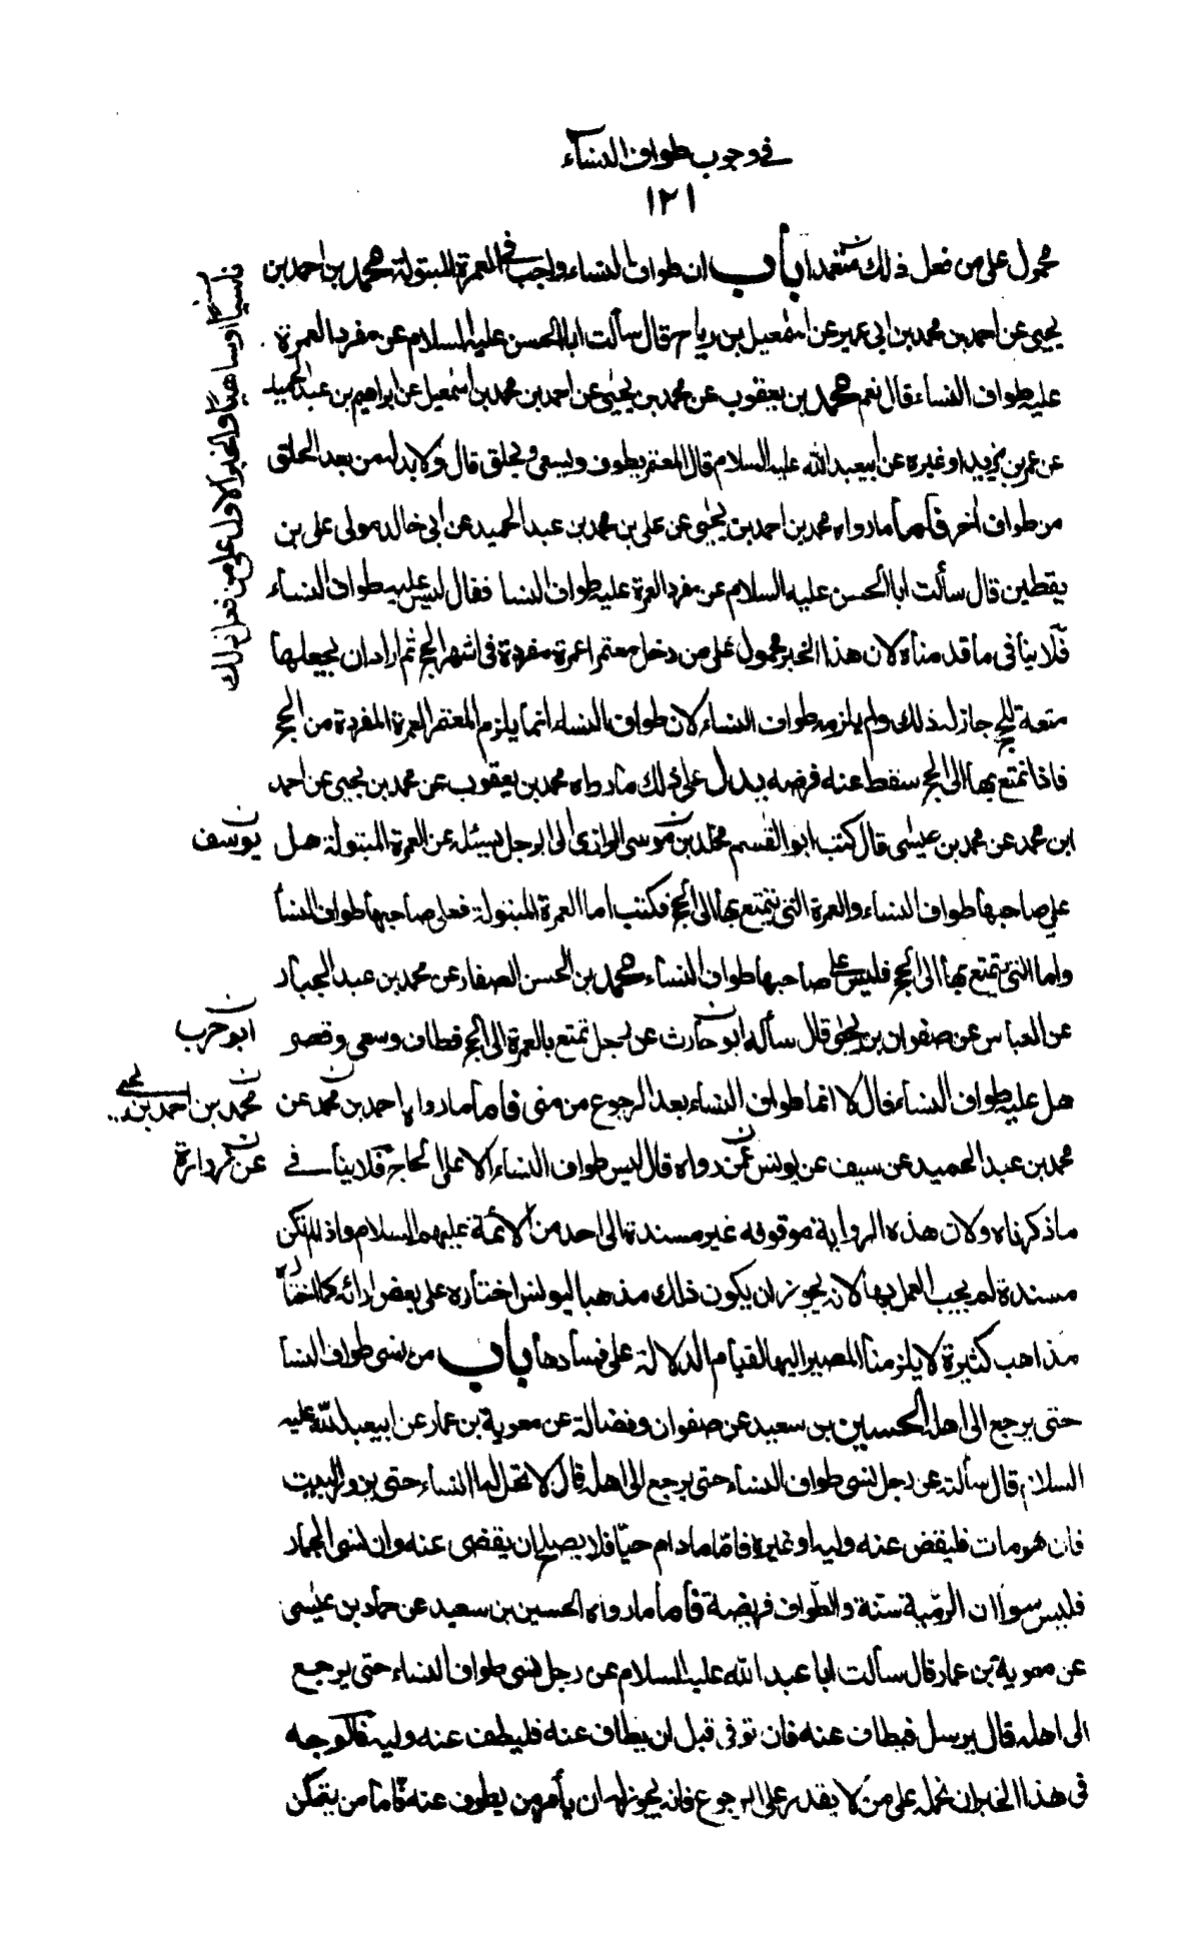 في وجوب طواف النساء
١٢١
محمول على من فعل ذلك متعمدا باب ان طواف النساء واجب في العمرة المبتولة محمد بن احمد بن
يحيى عن احمد بن محمد بن ابي عمير عن اسمعيل بن رياح قال سألت ابا الحسن عليه السلام عن مفرد العمرة
عليه طواف النساء قال نعم محمد بن يعقوب عن محمد بن يحيى عن احمد بن محمد بن اسمعيل عن ابراهيم بن عبد الحميد
عن عمر بن يزيد او غيره عن ابيعبد الله عليه السلام قال المعتمر يطوف ويسعى ويحلق قال ولا بد له من بعد الحلق
من طواف اخر فأما ما رواه محمد بن احمد بن يحيى عن على بن محمد بن عبد الحميد عن ابي خالد مولى على بن
يقطين قال سألت ابا الحسن عليه السلام عن مفرد العمرة عليه طواف النسا فقال ليس عليه طواف النساء
فلا ينافى ما قدمناه لان هذا الخبر محمول على من دخل معتمرا عمرة مفردة فى اشهر الحج ثم اراد ان يجعلها
متعة للحج جاز له ذلك ولم يلزمه طواف النساء لان طواف النساء انما يلزم المعتمر العمرة المفردة من الحج
فاذا تمتع بها الى الحج سقط عنه فرضه يدل على ذلك ما رواه محمد بن يعقوب عن محمد بن يحيى عن احمد
ابن محمد عن محمد بن عيسى قال كتب ابو القسم مخلد بن موسى الرازى الى الرجل يسئله عن العمرة المبتولة هل
على صاحبها طواف النساء والعمرة التى يتمتع بها الى الحج فكتب اما العمرة المبتولة فعلى صاحبها طواف النسأ
واما التى يتمتع بها الى الحج فليس على صاحبها طواف النساء محمد بن الحسن الصفار عن محمد بن عبد الجبار
عن العباس عن صفوان بن يحيى قال سأله ابو حارث عن رجل تمتع بالعمرة الى الحج فطاف وسعى وقصر
هل عليه طواف النساء فقال لا انما طواف النساء بعد الرجوع من منى فأما ما رواه احمد بن محمد عن
محمد بن عبد الحميد عن سيف عن يونس عمن رواه قال ليس طواف النساء الا على الحاج فلا ينافي
ما ذكرناه ولان هذه الرواية موقوفه غير مسندة الى احد من الائمة عليهم السلام واذا لم تكن
مسندة لم يجب العمل بها لانه يجوز ان يكون ذلك مذهبا ليونس اختاره على بعض ارائه كما اختار
مذاهب كثيرة لا يلزمنا المصير اليها لقيام الدلالة على فسادها باب من نسى طواف النسا
حتى يرجع الى اهله الحسين بن سعيد عن صفوان وفضالة عن معوية بن عمار عن ابيعبد الله عليه
السلام قال سألته عن رجل نسى طواف النساء حتى يرجع الى اهله قال لا تحل له النساء حتى يزور البيت
فان هو مات فليقض عنه وليه او غيره فاما ما دام حيا فلا يصلح ان يقضى عنه وان نسى الجمار
فليس سواء ان الرمية سنة والطواف فريضة فأما ما رواه الحسين بن سعيد عن حماد بن عيسى
عن معوية بن عمار قال سألت ابا عبد الله عليه السلام عن رجل نسى طواف النساء حتى يرجع
الى اهله قال يرسل فيطاف عنه فان توفى قبل ان يطاف عنه فليطف عنه وليه فالوجه
فى هذا الخبر ان نحمله على من لا يقدر على الرجوع فانه يجوز له ان يأمر من يطوف عنه فأما من يتمكن
ناسيا او ساهيا والخبر الاول على من فعل ذلك
يوسف
ابو حرب
محمد بن احمد بن يحيى
عن